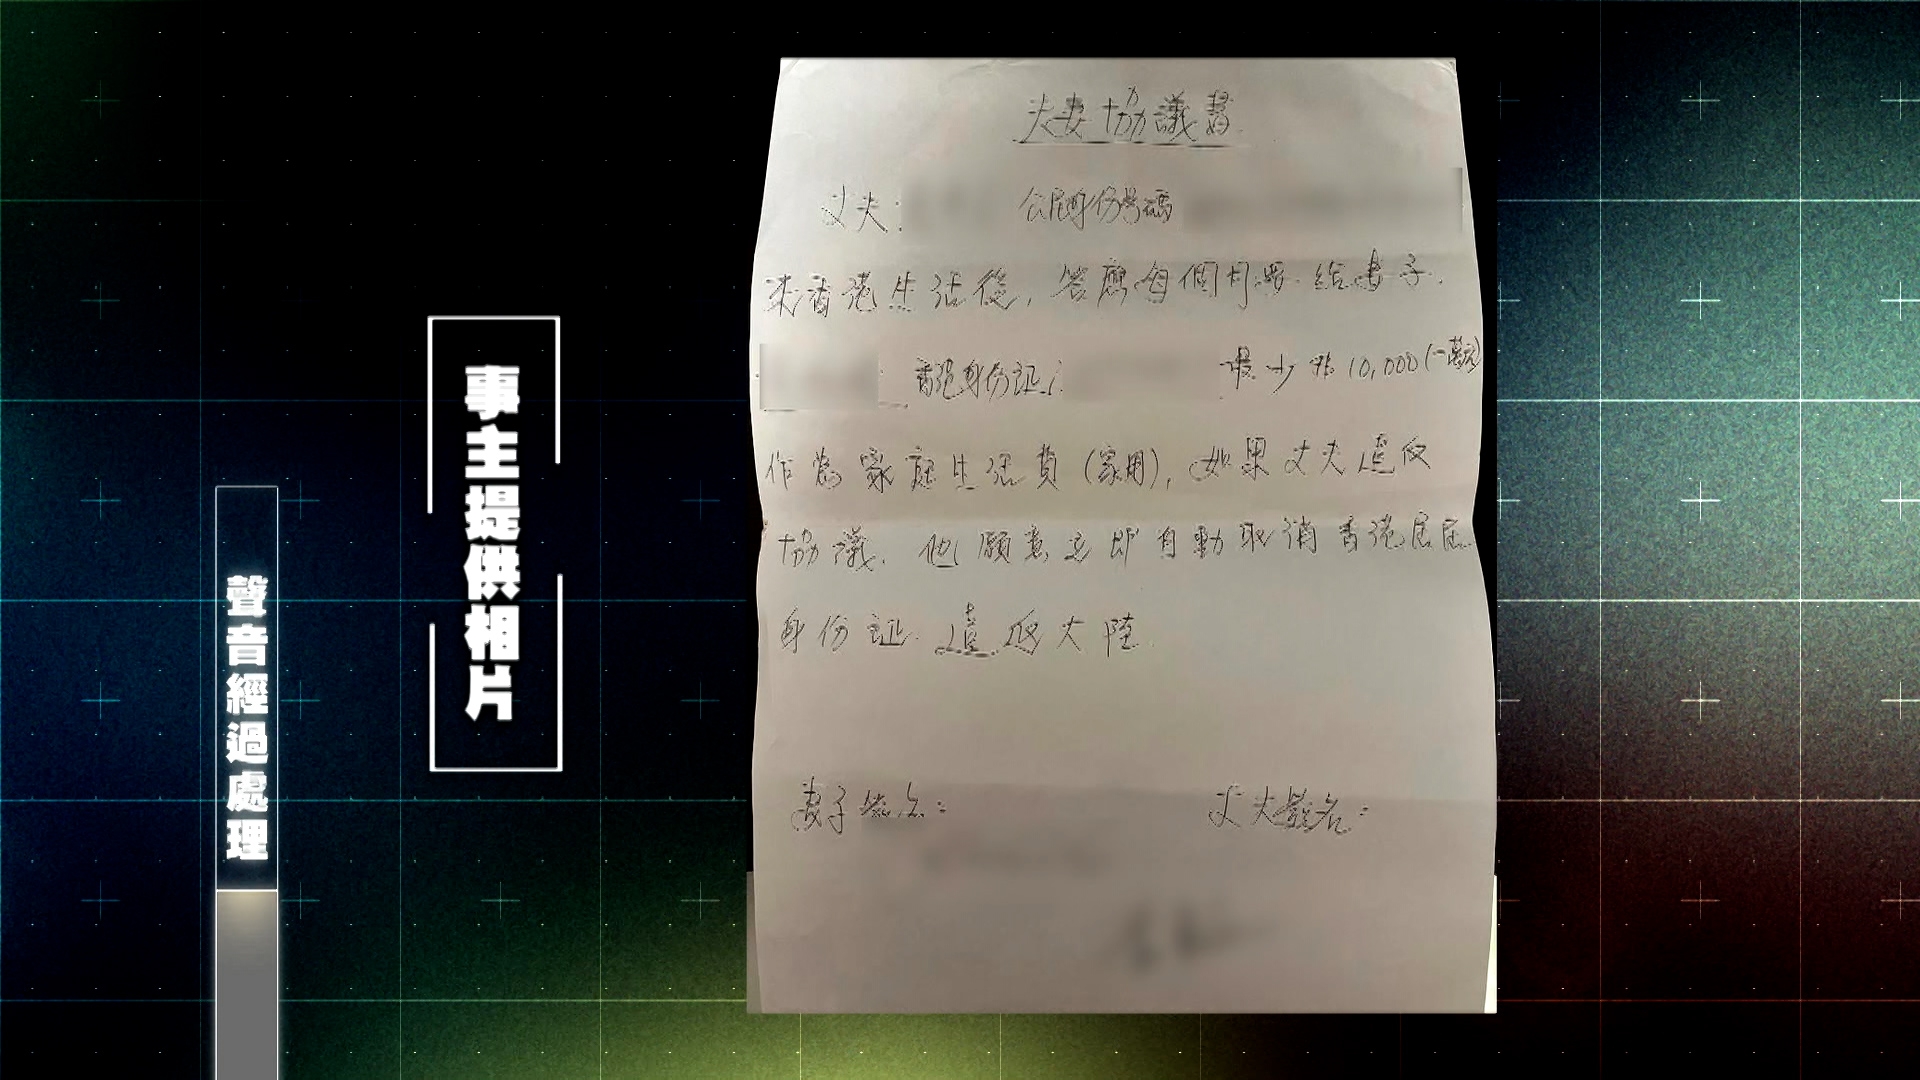 聲音經過處理
事主提供相片
夫妻協議書
丈夫: 公民身份号碼
來香港生活後, 答應每個月要給妻子.
香港身份证: 最少 10,000 (一萬元)
作為家庭生活費 (家用), 如果丈夫違反
協議. 他願意立即自動取消香港居民
身份证. 遣返大陸.
妻子簽名: 丈夫簽名: